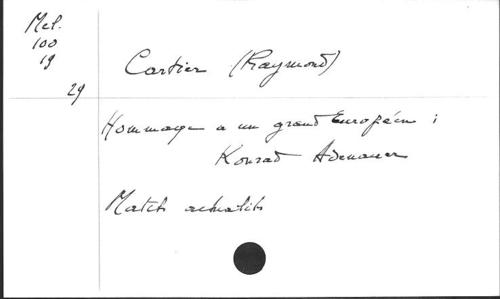 Mel.
100
19
29
Cartier (Raymond)
Hommage a un grand Européen :
Konrad Adenauer
Match actualités